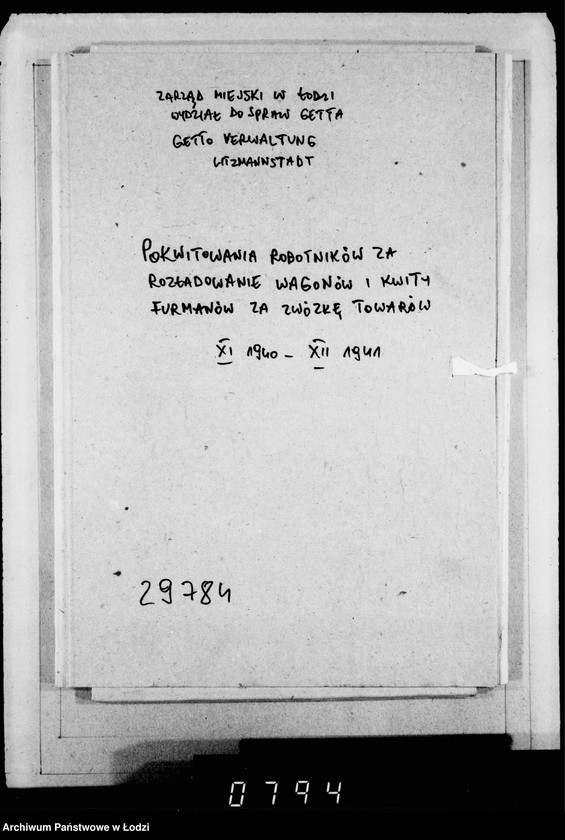 ZARZĄD MIEJSKI W ŁODZI
WYDZIAŁ DO SPRAW GETTA
GETTO VERWALTUNG
LITZMANNSTADT
POKWITOWANIA ROBOTNIKÓW ZA
ROZŁADOWANIE WAGONÓW I KWITY
FURMANÓW ZA ZWÓZKĘ TOWARÓW
XI 1940 - XII 1941
29784
0794
Archiwum Państwowe w Łodzi